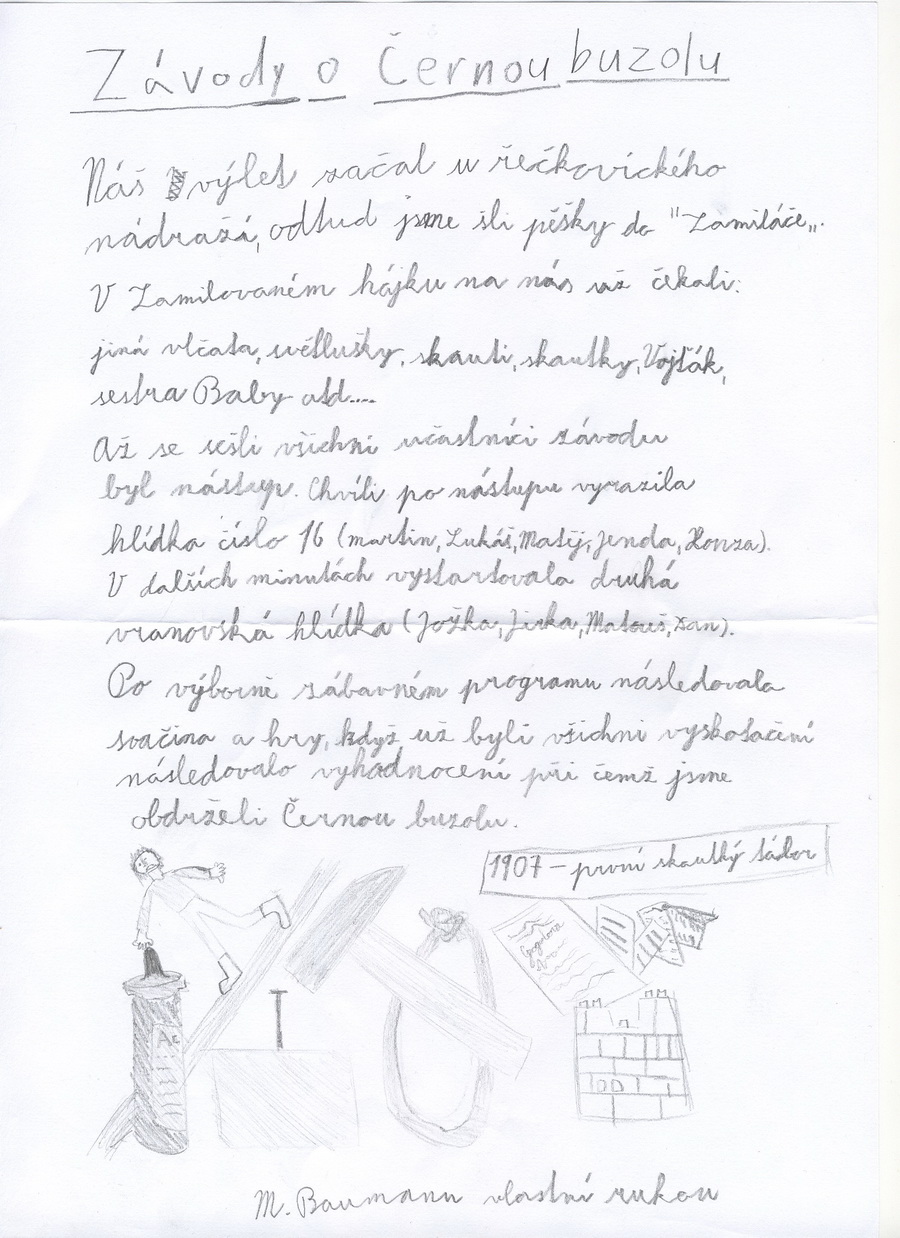 Závody o Černou buzolu
Náš výlet začal u řečkovického
nádraží, odtud jsme šli pěšky do "Zamiláče„.
V Zamilovaném hájku na nás už čekali:
jiná vlčata, světlušky, skauti, skautky, Vojťák,
sestra Baby atd....
Až se sešli všichni účastníci závodu
byl nástup. Chvíli po nástupu vyrazila
hlídka číslo 16 (martin, Lukáš, Matěj, Jenda, Honza).
V dalších minutách vystartovala druhá
vranovská hlídka (Jožka, Jirka, Matouš, Dan).
Po výborně zábavném programu následovala
svačina a hry, když už byli všichni vyskotačení
následovalo vyhodnocení při čemž jsme
obdrželi Černou buzolu.
1907 – první skautský tábor
M. Baumann vlastní rukou